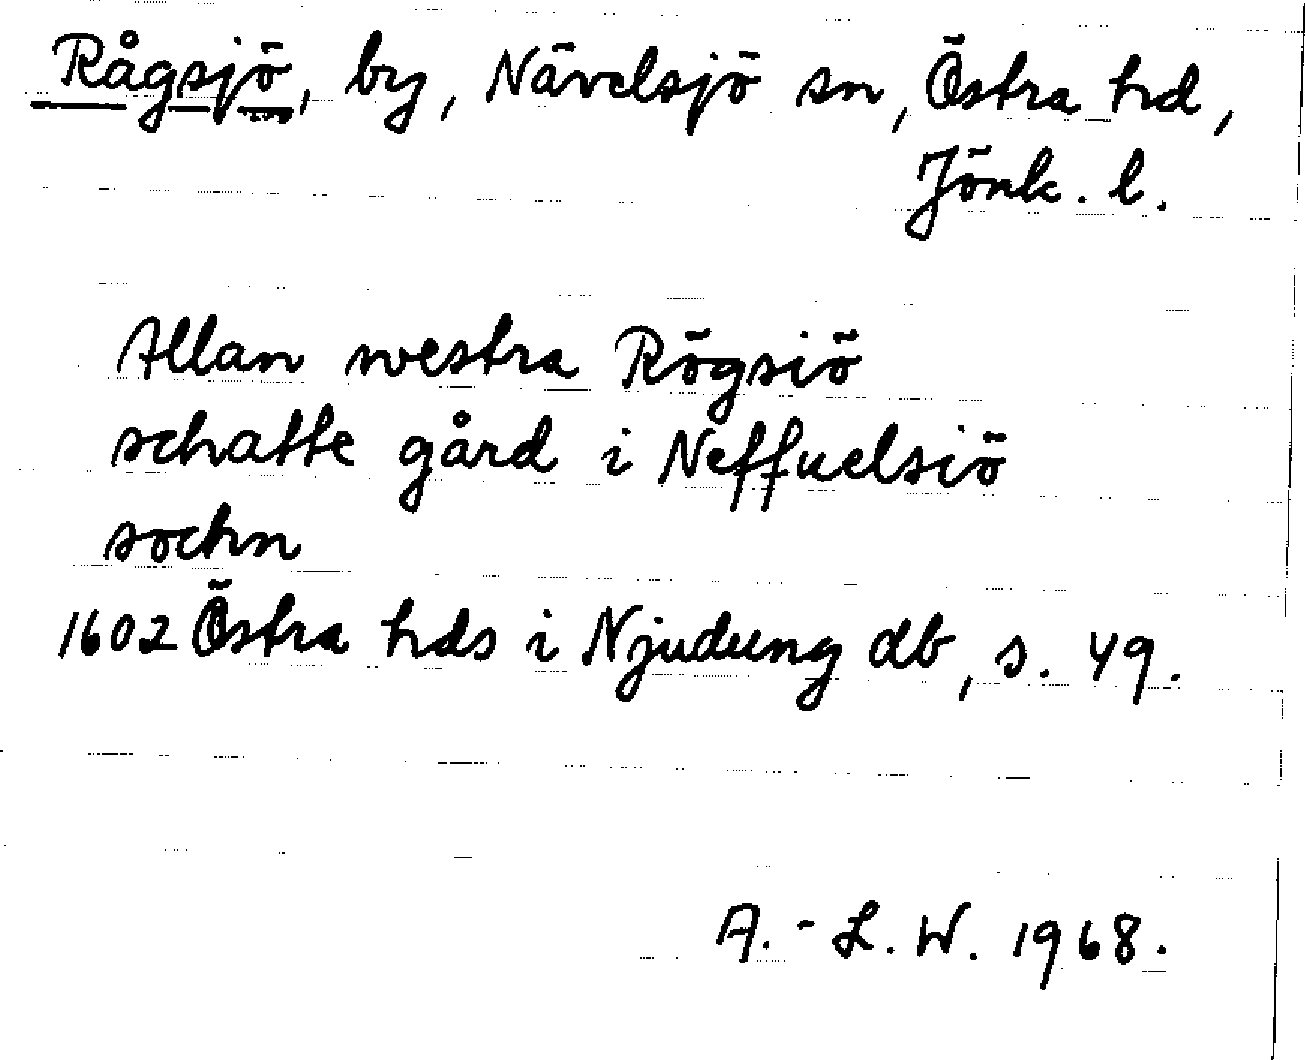 Rågsjö, by, Nävelsjö sn, Östra hd,
Jönk. l.
Allan westra Rögsiö
schatte gård i Neffuelsiö
sochn
1602 Östra hds i Njudung db, s. 49.
A.-L.W. 1968.